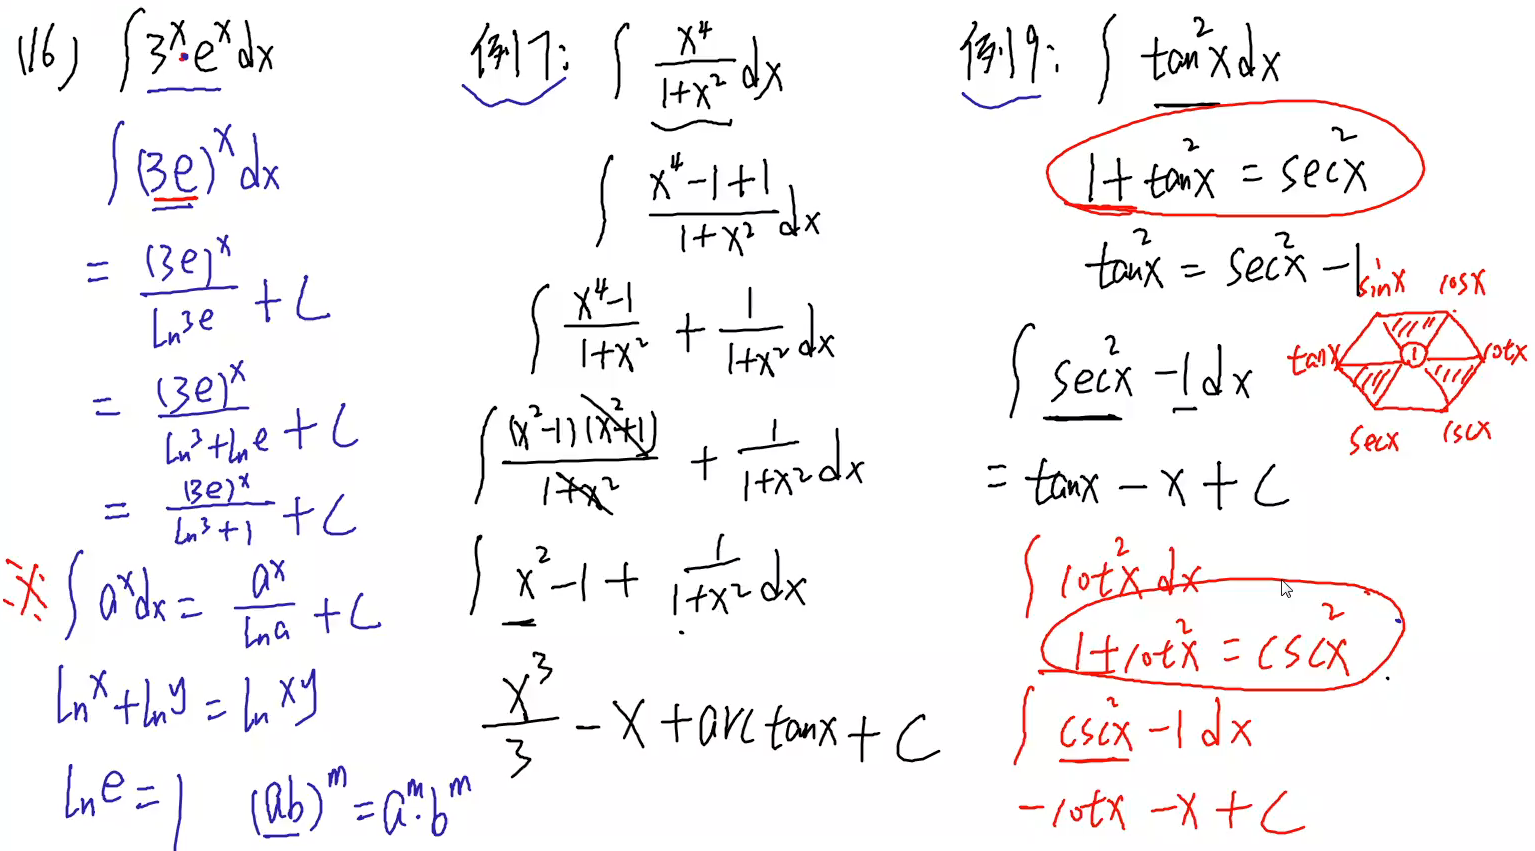 (16) ∫ 3^x · e^x dx
∫ (3e)^x dx
= (3e)^x / ln3e + C
= (3e)^x / (ln3 + lne) + C
= (3e)^x / (ln3 + 1) + C
※ ∫ a^x dx = a^x / lna + C
lnx + lny = lnxy
lne = 1 (ab)^m = a^m · b^m
例17: ∫ x^4 / (1+x^2) dx
∫ (x^4 - 1 + 1) / (1+x^2) dx
∫ (x^4 - 1) / (1+x^2) + 1 / (1+x^2) dx
∫ (x^2-1)(x^2+1) / (1+x^2) + 1 / (1+x^2) dx
∫ x^2 - 1 + 1 / (1+x^2) dx
x^3 / 3 - x + arctanx + C
例19: ∫ tan^2x dx
1 + tan^2x = sec^2x
tan^2x = sec^2x - 1
sinx cosx
tanx 1 cotx
secx cscx
∫ sec^2x - 1 dx
= tanx - x + C
∫ cot^2x dx
1 + cot^2x = csc^2x
∫ csc^2x - 1 dx
-cotx - x + C